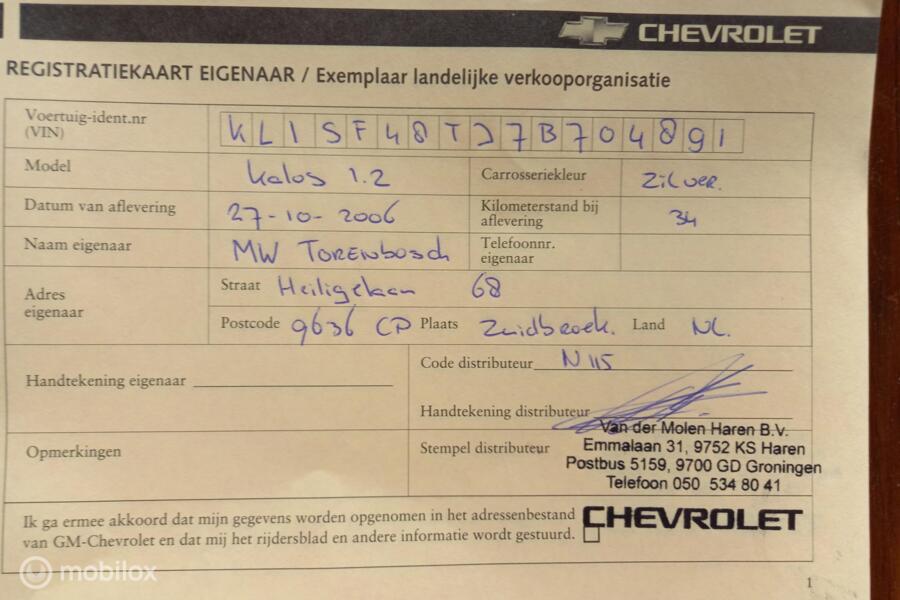 CHEVROLET
REGISTRATIEKAART EIGENAAR / Exemplaar landelijke verkooporganisatie
Voertuig-ident.nr
(VIN)
KL1SF48TJ7B704891
Model
Kalos 1.2
Carrosseriekleur
Zilver.
Datum van aflevering
27-10-2006
Kilometerstand bij
aflevering
34
Naam eigenaar
MW TORENBOSCH
Telefoonnr.
eigenaar
Adres
eigenaar
Straat Heiligelaan 68
Postcode 9636 CP Plaats Zuidbroek. Land NL.
Handtekening eigenaar
Code distributeur N115
Handtekening distributeur
Opmerkingen
Stempel distributeur
Van der Molen Haren B.V.
Emmalaan 31, 9752 KS Haren
Postbus 5159, 9700 GD Groningen
Telefoon 050 534 80 41
Ik ga ermee akkoord dat mijn gegevens worden opgenomen in het adressenbestand
van GM-Chevrolet en dat mij het rijdersblad en andere informatie wordt gestuurd.
CHEVROLET
1
mobilox